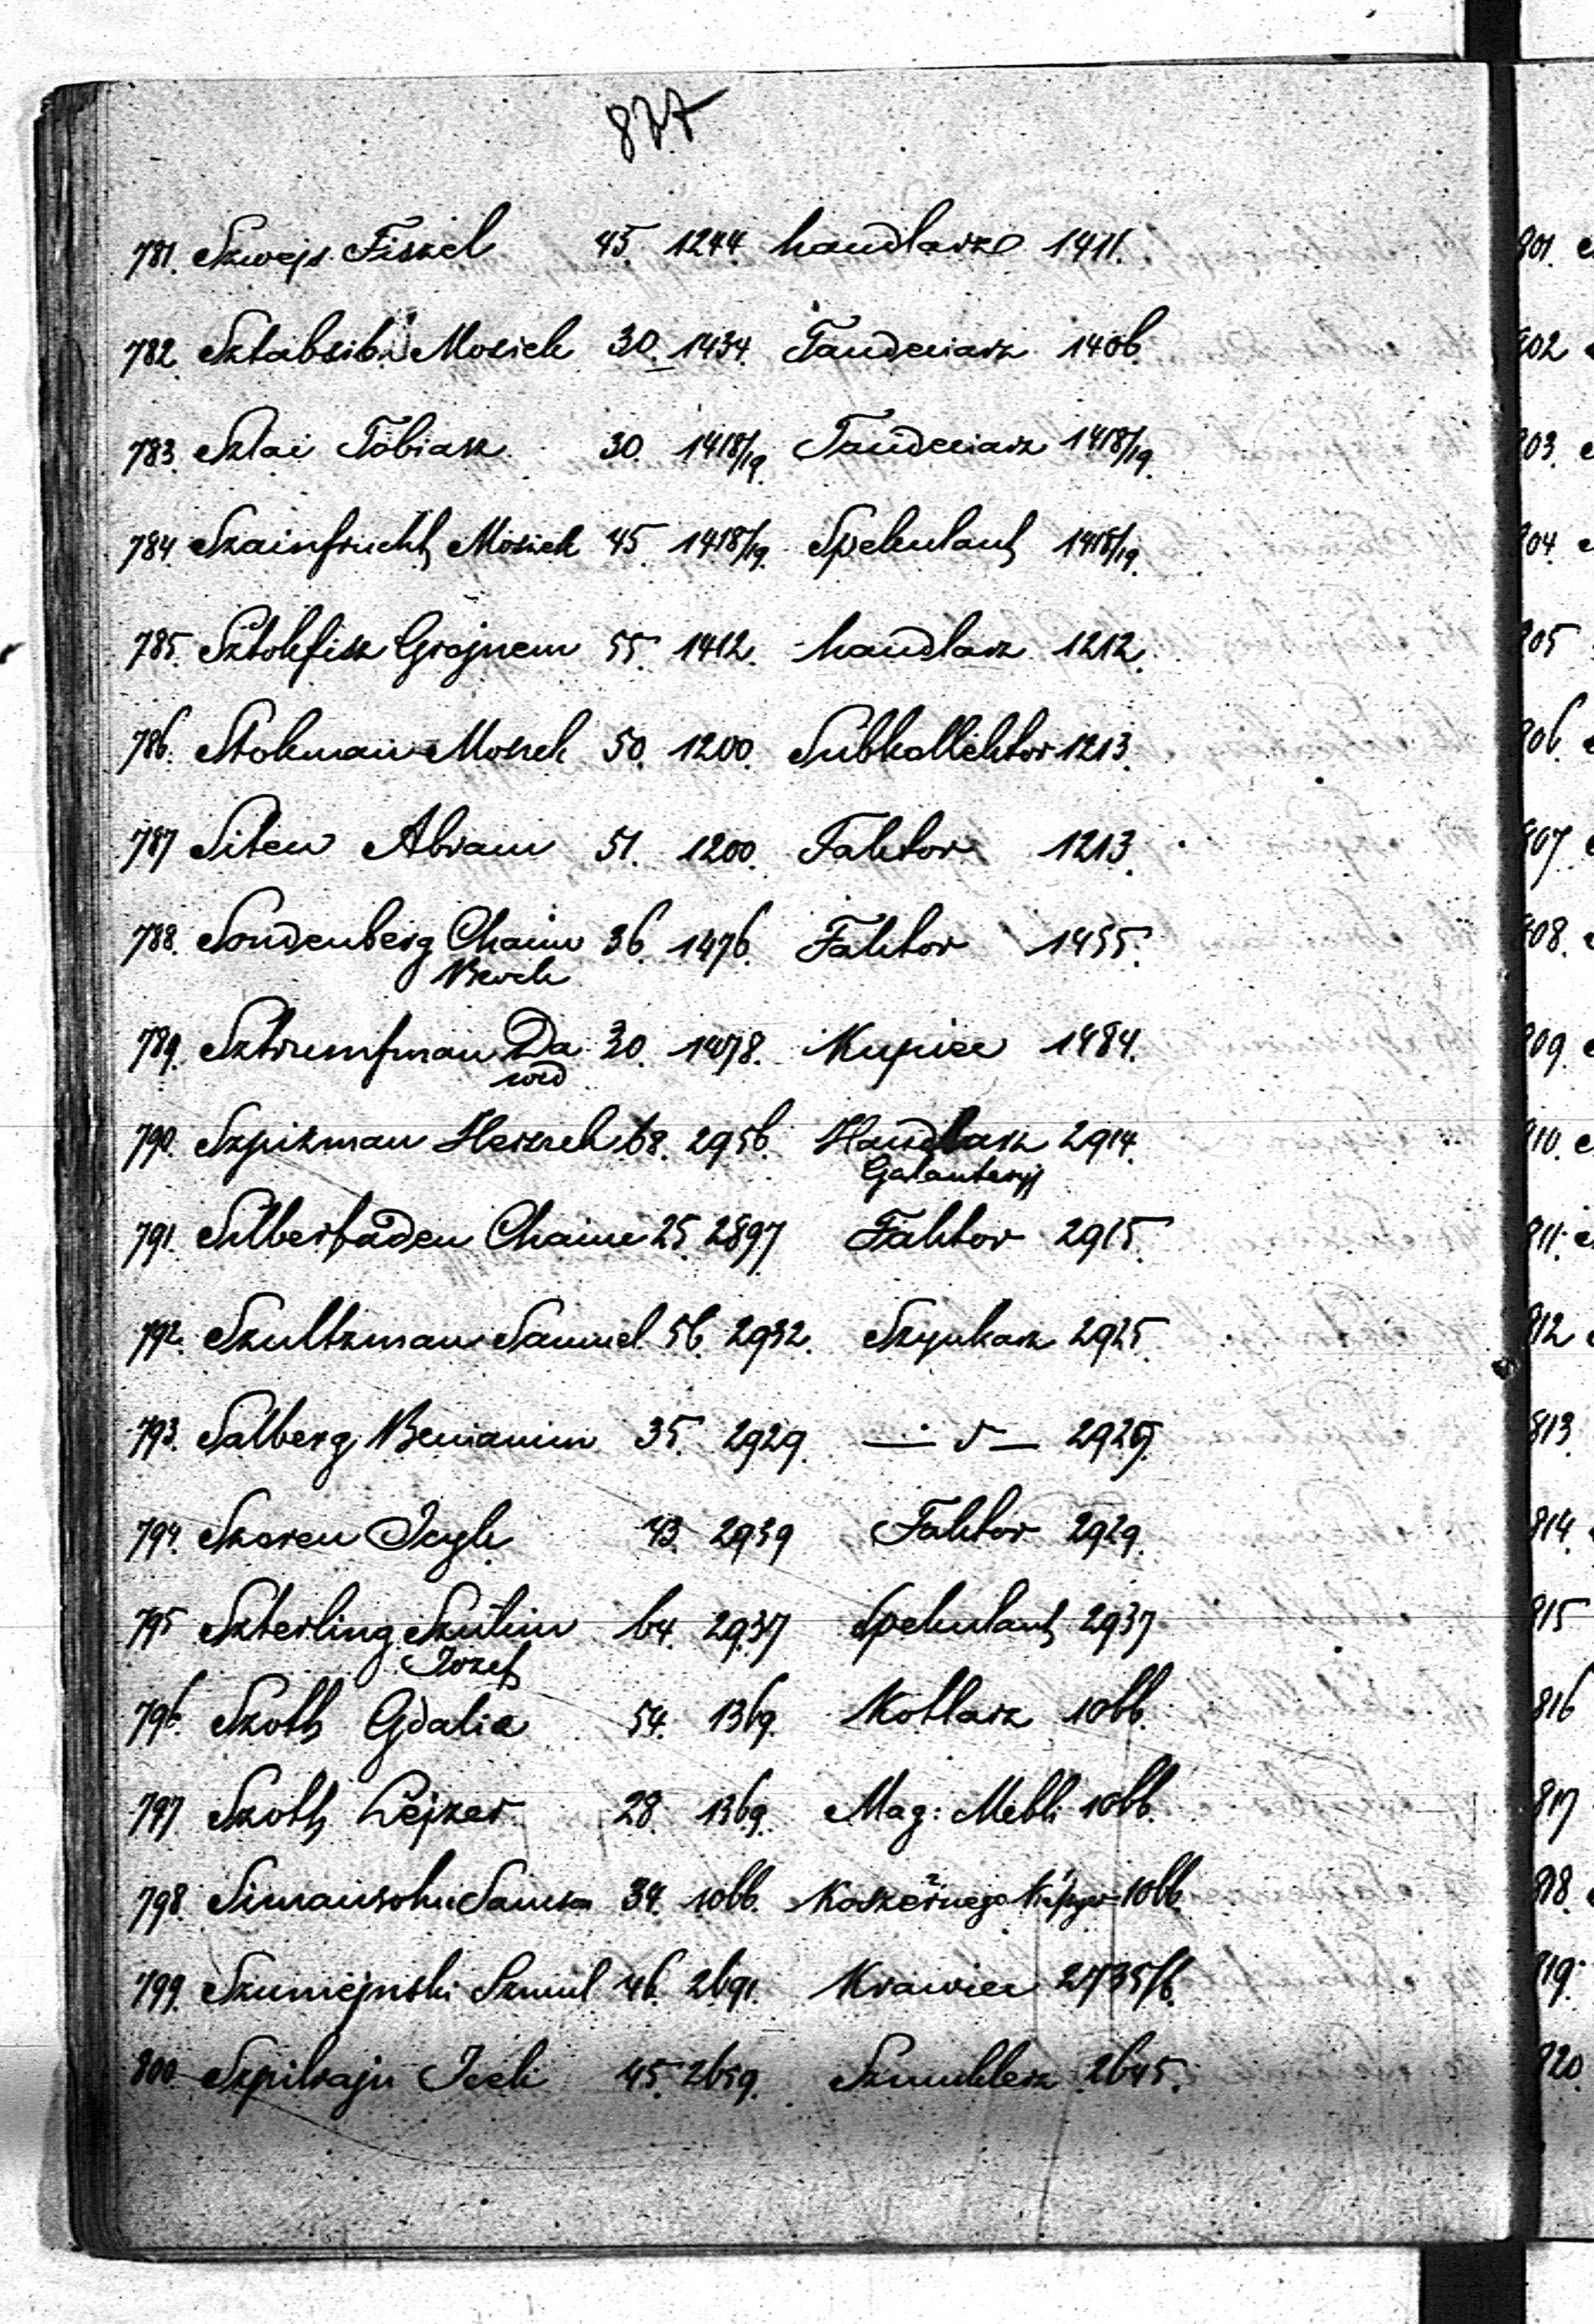 837
781. Szwejs Fiszel 45. 1244. handlarz 1411.
782. Sztabsib Mosiek 30. 1434. Tandeciarz 1406.
783. Szlai Tobiasz 30. 1418/19. Tandeciarz 1418/19.
784. Szainfrucht Mosiek 45 1418/19. Spekulant 1418/19.
785. Sztokfisz Grojnem 55. 1412. handlarz 1212.
786. Stokman Moszek 50. 1200. Subkollektor 1213.
787 Siten Abram 51. 1200. Faktor 1213.
788. Sondenberg Chaim 36. 1476. Faktor 1455.
Berek
789. Sztrumfman Da 30. 1478. Kupiec 1484.
wid
790. Szpizman Herszek 68. 2956. Handlarz 2914.
Galanteryj
791. Silberfaden Chaim 25. 2897 Faktor 2915.
792. Szultzman Samuel 56. 2932. Szynkarz 2925.
793. Salberg Beniamin 35. 2929. — " — 2929.
794. Szoren Icyk 43. 2939 Faktor 2929.
795 Szterling Szulim 64. 2937 Spekulant 2937
Jozef
796. Szott Gdalia 54. 1369. Kotlarz 1066.
797 Szott Lejzer 28. 1369. Mag: Mebli 1066.
798. Simansohn Samson 34. 1066. 1066.
799. Szumiejnski Szmul 46. 2691. Krawiec 2735/6.
800 Szpilrajn Icek 45. 2659. Szmuklerz 2645.
801.
802
803.
804.
805
806.
807
808.
809.
810.
811.
812
813
814.
815
816
817
818.
819.
820.